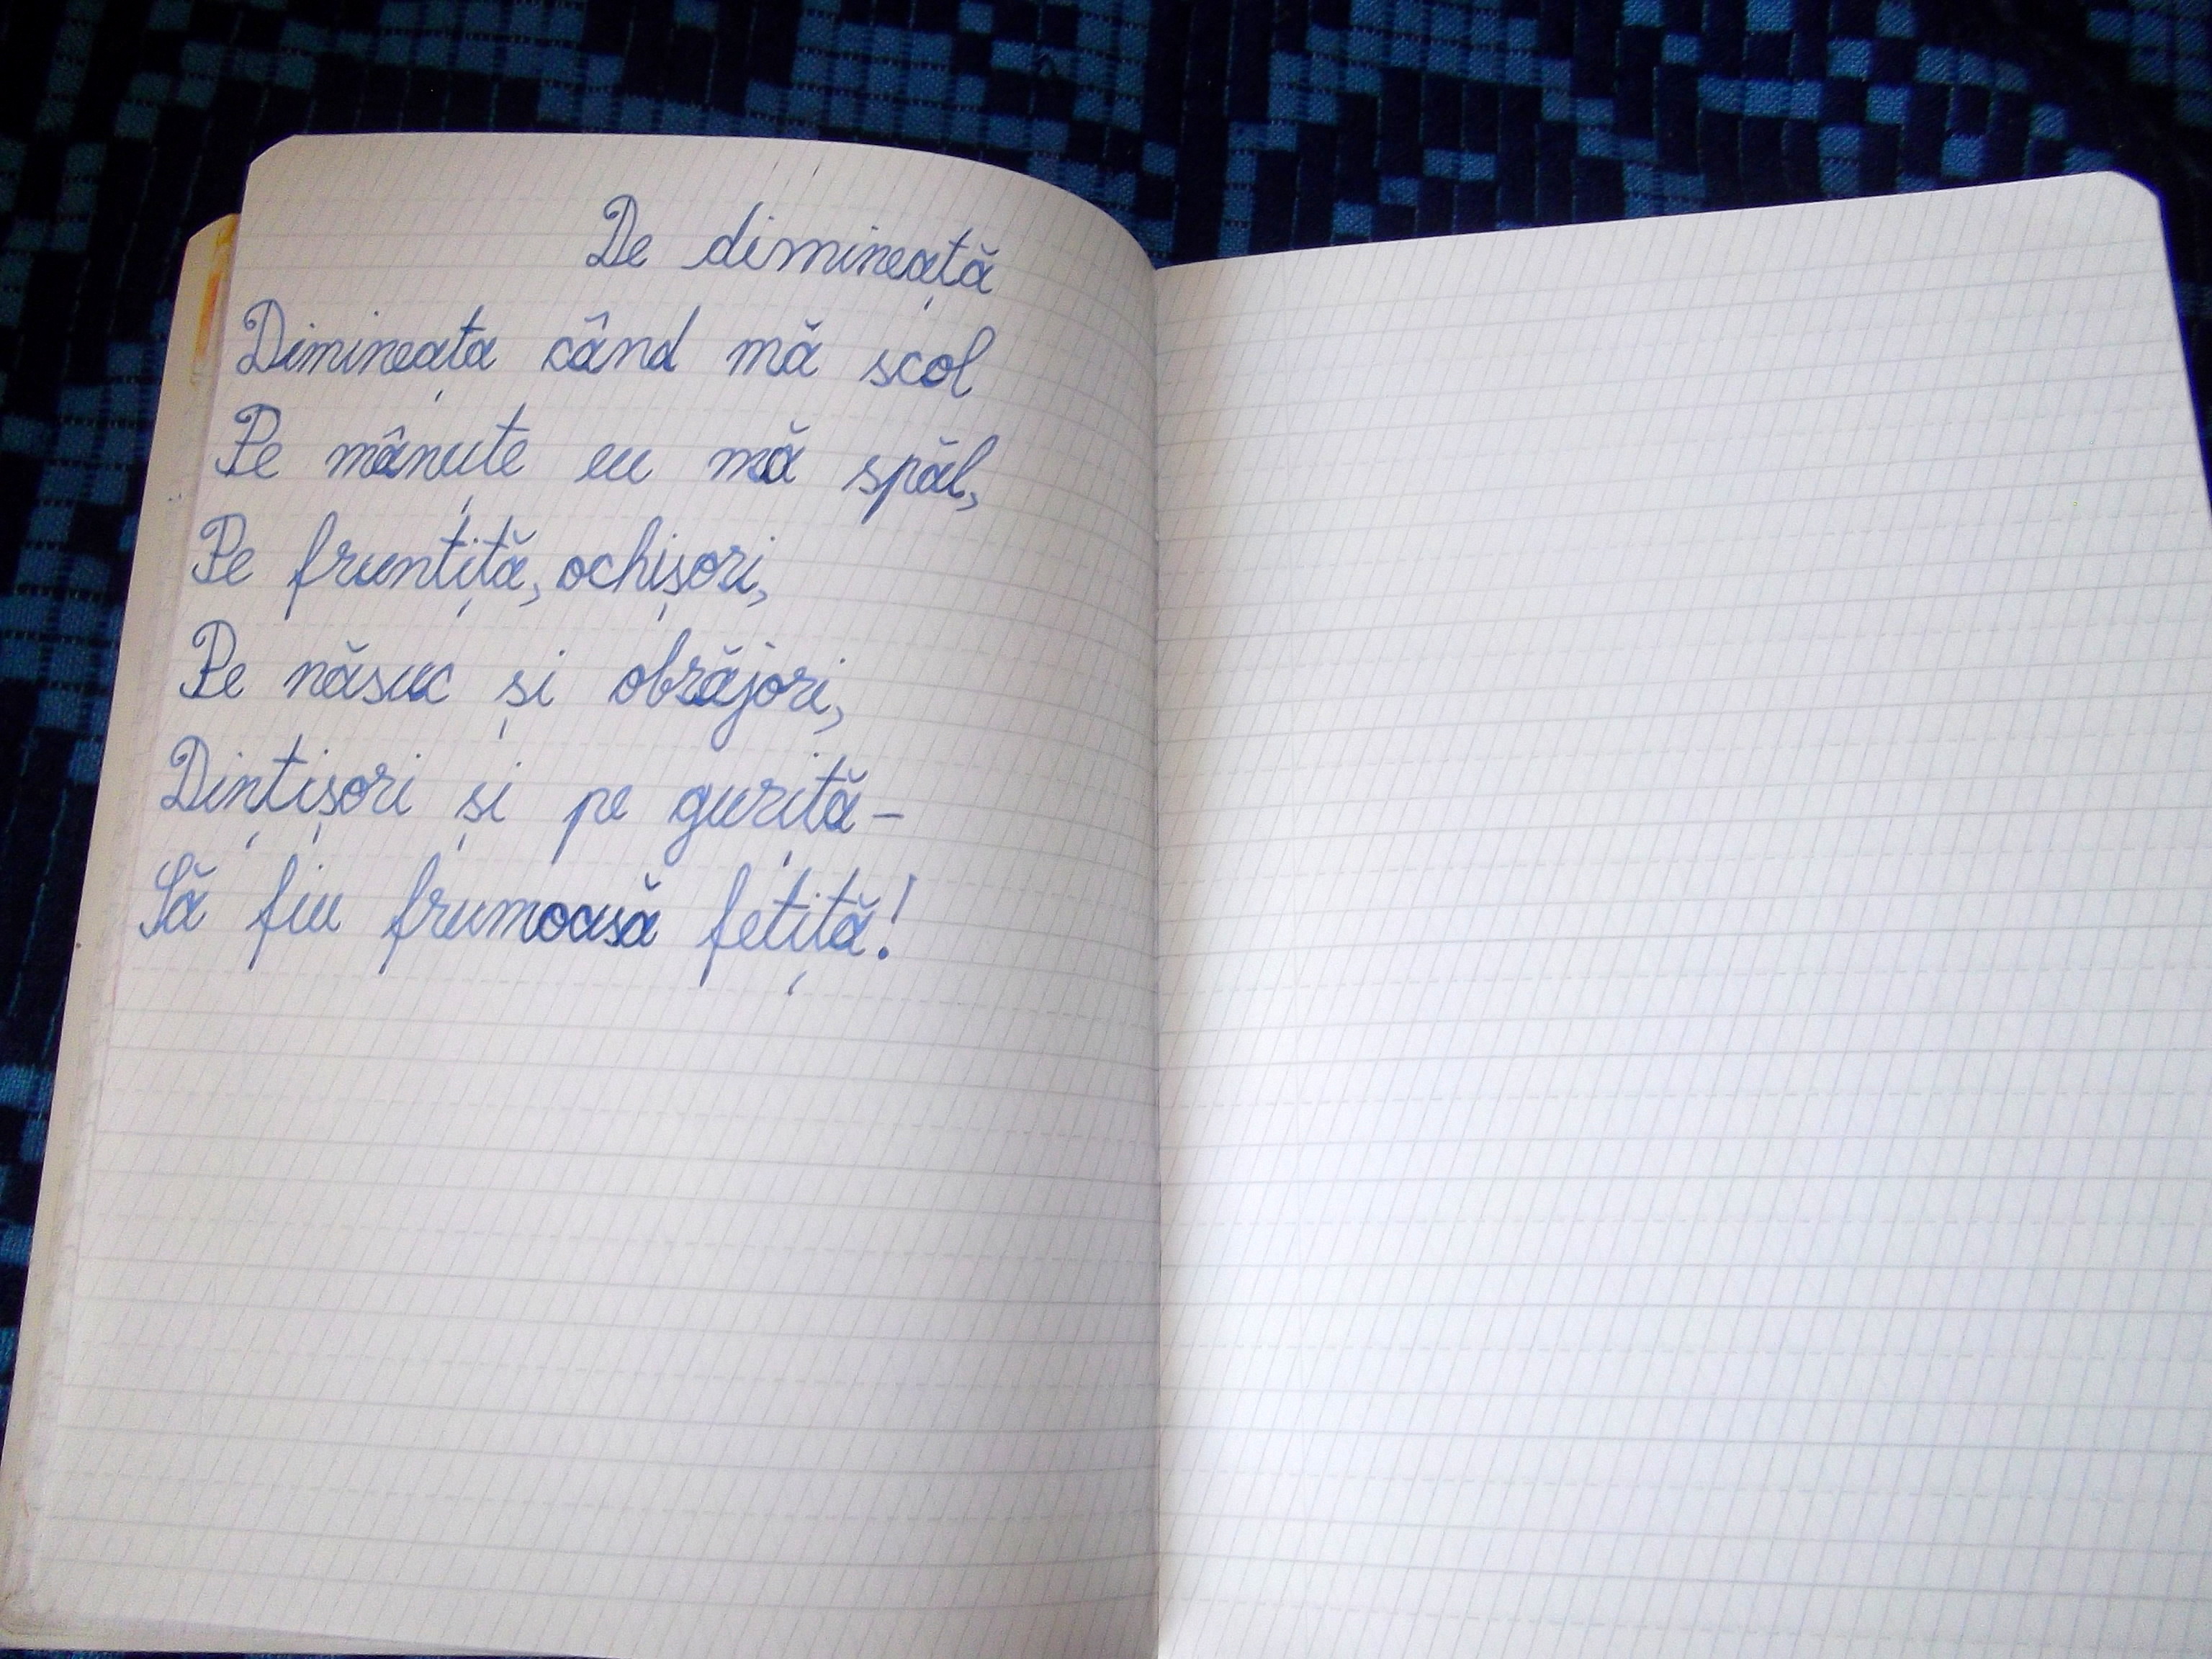 De dimineață
Dimineața când mă scol
Pe mânuțe eu mă spăl,
Pe fruntiță, ochișori,
Pe năsuc și obrăjori,
Dințișori și pe guriță-
Să fiu frumoasă fetiță!